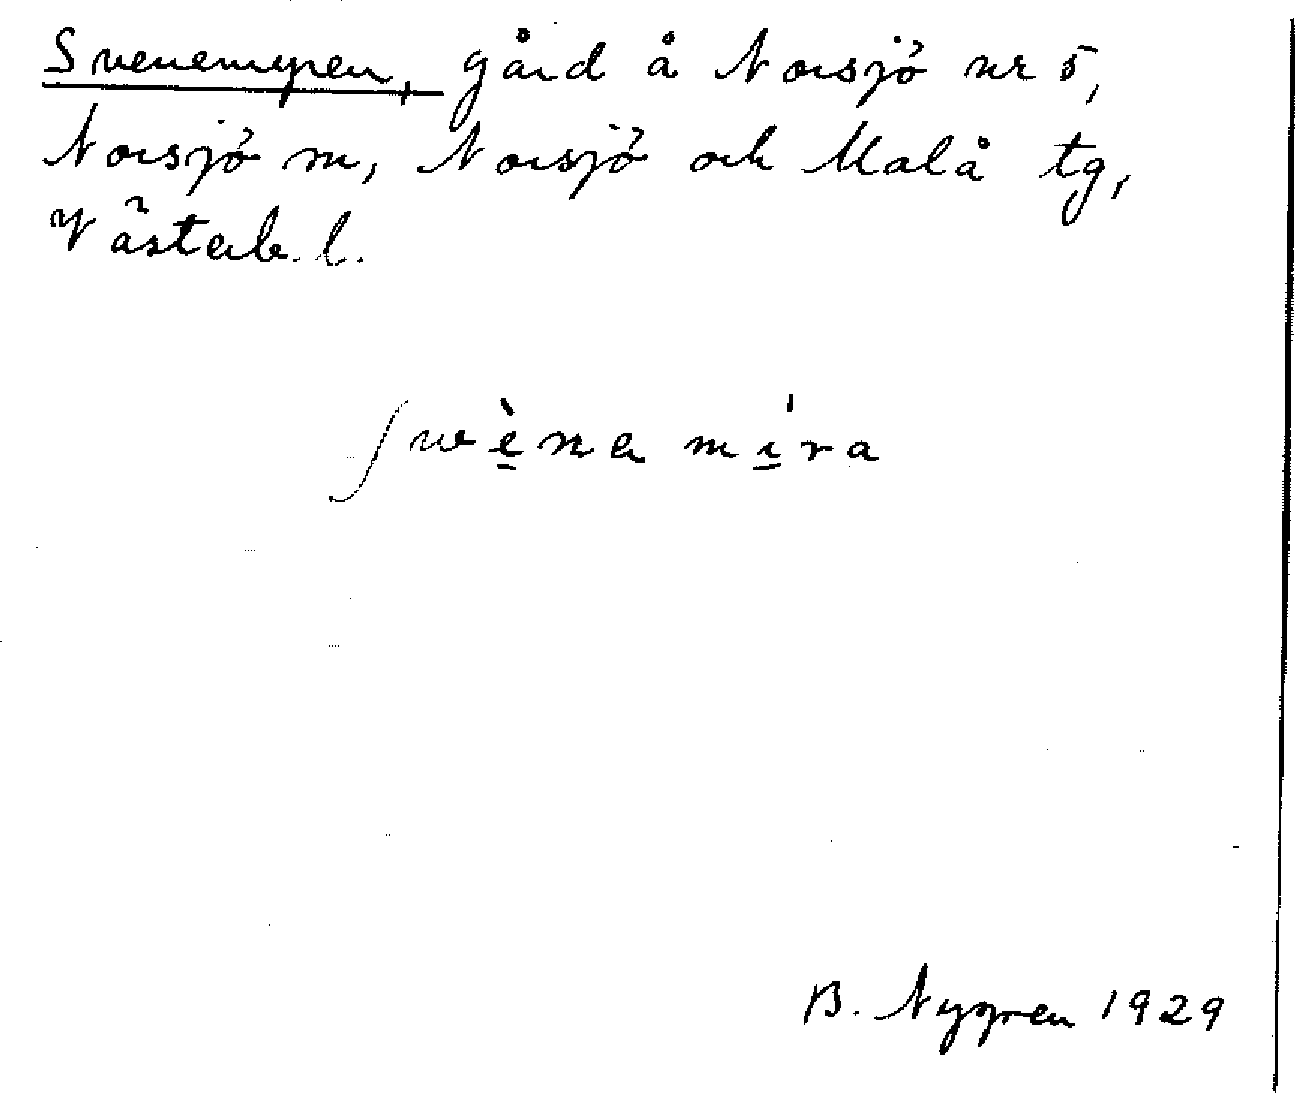 Svenemyren, gård å Norsjö nr 5,
Norsjö sn, Norsjö och Malå tg,
Västerb. l.
ʃwè̱na mí̱ra
B. Nygren 1929